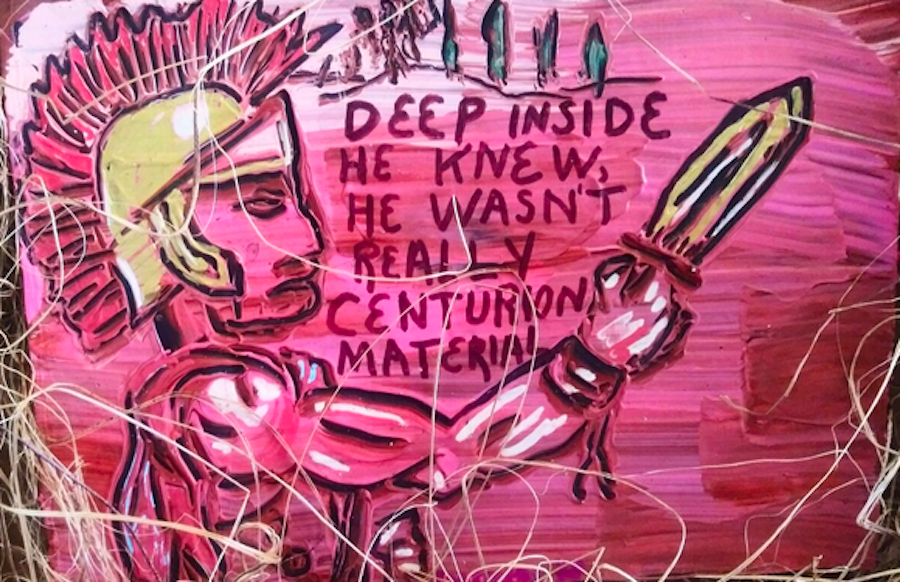 DEEP INSIDE
HE KNEW,
HE WASN'T
REALLY
CENTURION
MATERIAL